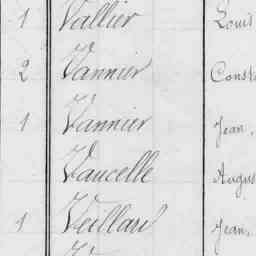 1 Vallier Louis
2 Vannier Const
1 Vannier Jean,
Vaucelle Augus
1 Veillard Jean,